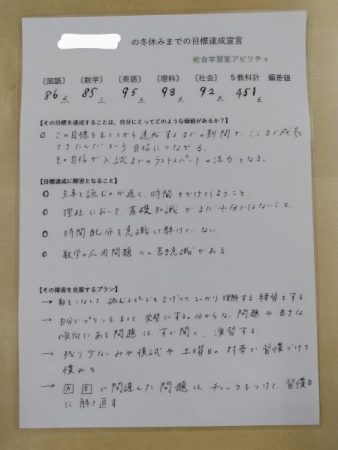 の冬休みまでの目標達成宣言
総合学習室アビリティ
〔国語〕 〔数学〕 〔英語〕 〔理科〕 〔社会〕 5教科計 偏差値
86点 85点 95点 93点 92点 451点
【その目標を達成することは、自分にとってどのような価値があるか？】
○ この目標を立ててから達成するまでの期間でここまで成長
できたんだという自信につながる。
その自信が入試までのラストスパートの活力となる。
【目標達成に障害となること】
○ 文章を読むのが遅く、時間をかけてしまうこと。
○ 理社において、基礎知識がまだ十分ではないこと。
○ 時間配分を意識した解けていない。
○ 数学の応用問題への苦手意識がある。
【その障害を克服するプラン】
→ 数をこなして読むスピードを上げつつ、しっかり理解する練習をする。
→ 自分でプランを立てて完璧にする。分からない問題や苦手な
傾向にある問題はすぐ聞く、演習する。
→ 残り少ないみや模試や土曜日の対策で習慣づけて
慣れる。
→ A B が間違えた問題はチェックをつけて、習慣的
に解き直す